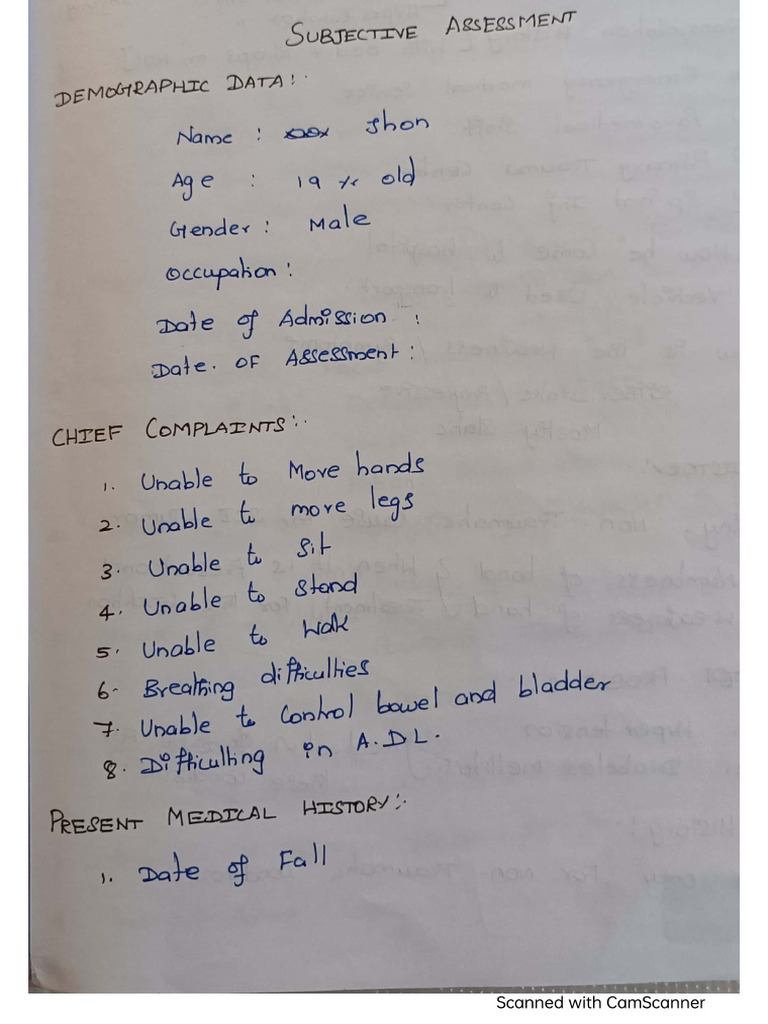 SUBJECTIVE ASSESSMENT
DEMOGRAPHIC DATA:
Name : xxx Jhon
Age : 19 yr old
Gender: Male
Occupation:
Date of Admission :
Date. OF Assessment:
CHIEF COMPLAINTS:
1. Unable to Move hands
2. Unable to move legs
3. Unable to Sit
4. Unable to Stand
5. Unable to Walk
6. Breathing difficulties
7. Unable to Control bowel and bladder
8. Difficulting in A.D.L.
PRESENT MEDICAL HISTORY:
1. Date of Fall
Scanned with CamScanner